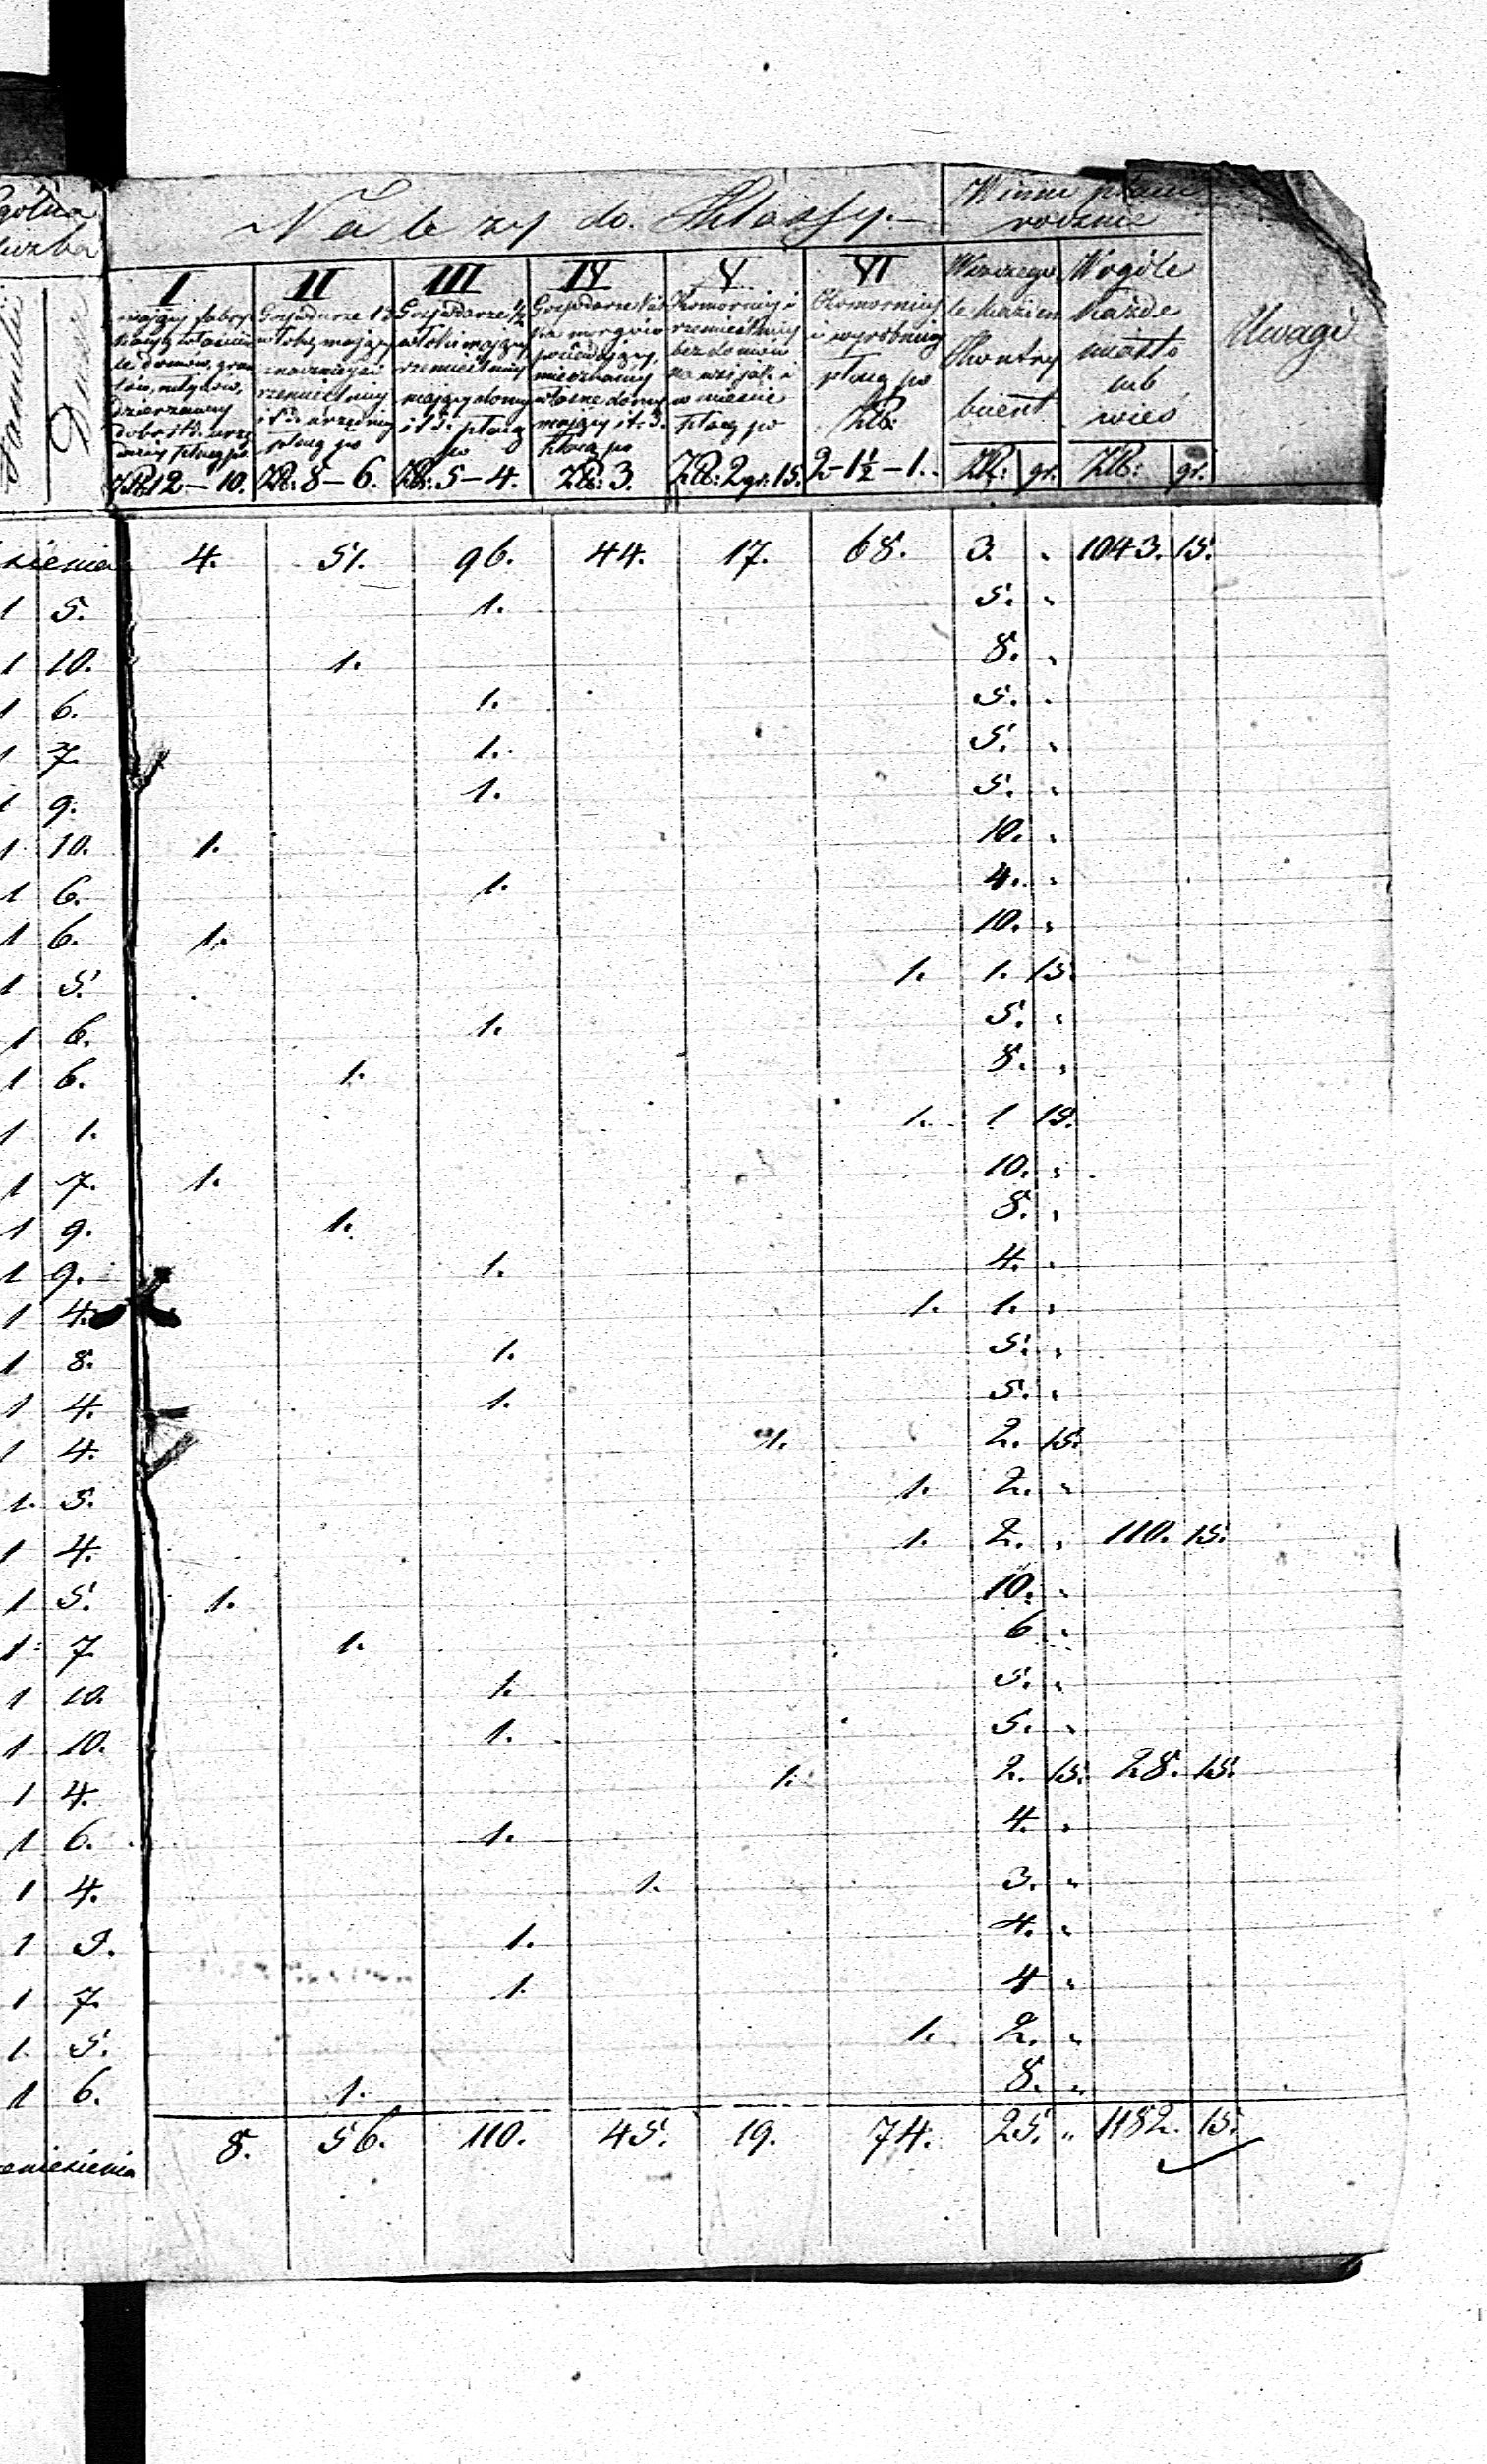 gólna
liczba
Familii
Dusz
Należy do Klassy.
Winien płacić
rocznie
I
II
III
IV
V
VI
mający fabry-
Gospodarze
Gospodarze ½
Gospodarze
Komornicy i
Komornicy
i wyrobnicy
płacą po
ZłR:
Wszczegó
le każden
Kontry
buent
Wogóle
każde
miasto
lub
wieś
Uwagi
le domów,
dzierżawcy
płacą po
włoki mający
rzemieślnicy
płacą po
włoki mający
rzemieślnicy
mający domy
i t.d. płacą
po
posiadający,
własne domy
mający i t.d.
płacą po
rzemieślnicy
bez domów
na wsi jak i
w mieście
płacą po
ZłR: 12 – 10.
ZłR: 8 – 6.
ZłR: 5 – 4.
ZłR: 3.
ZłR: 2 gr: 15.
2 – 1½ – 1.
ZłR: gr.
ZłR: gr.
sienia 4. 51. 96. 44. 17. 68. 3. " 1043. 15.
1 5. 1. 5. "
1 10. 1. 8. "
1 6. 1. 5. "
1 7. 1. 5. "
1 9. 1. 5. "
1 10. 1. 10. "
1 6. 1. 4. "
1 6. 1. 10. "
1 5. 1. 1. 15.
1 6. 1. 5. "
1 6. 1. 8. "
1 1. 1. 1 15.
1 7. 1. 10. "
1 9. 1. 8. "
1 9. 1. 4. "
1 4. 1. 1. "
1 8. 1. 5. "
1 4. 1. 5. "
1 4. 1. 2. 15.
1. 5. 1. 2. "
1 4. 1. 2. " 110. 15.
1 5. 1. 10. "
1 7 1. 6 "
1 10. 1. 5. "
1 10. 1. 5. "
1 4. 1. 2. 15. 28. 15.
1 6. 1. 4. "
1 4. 1. 3. "
1 9. 1. 4. "
1 7. 1. 4 "
1. 5. 1. 2. "
1 6. 1. 8. "
eniesienia 8. 56. 110. 45. 19. 74. 25. " 1182. 15.